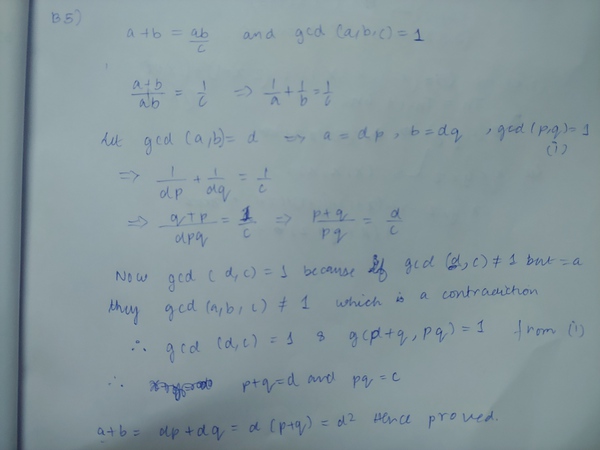 B5)
a+b = ab/c and gcd (a,b,c) = 1
a+b/ab = 1/c => 1/a + 1/b = 1/c
Let gcd (a,b) = d => a = dp, b = dq, gcd (p,q) = 1
(i)
=> 1/dp + 1/dq = 1/c
=> q+p/dpq = 1/c => p+q/pq = d/c
Now gcd (d,c) = 1 because if gcd (d,c) ≠ 1 but = a
they gcd (a,b,c) ≠ 1 which is a contradiction
∴ gcd (d,c) = 1 & g(p+q, pq) = 1 from (i)
∴ p+q = d and pq = c
a+b = dp+dq = d (p+q) = d² Hence proved.